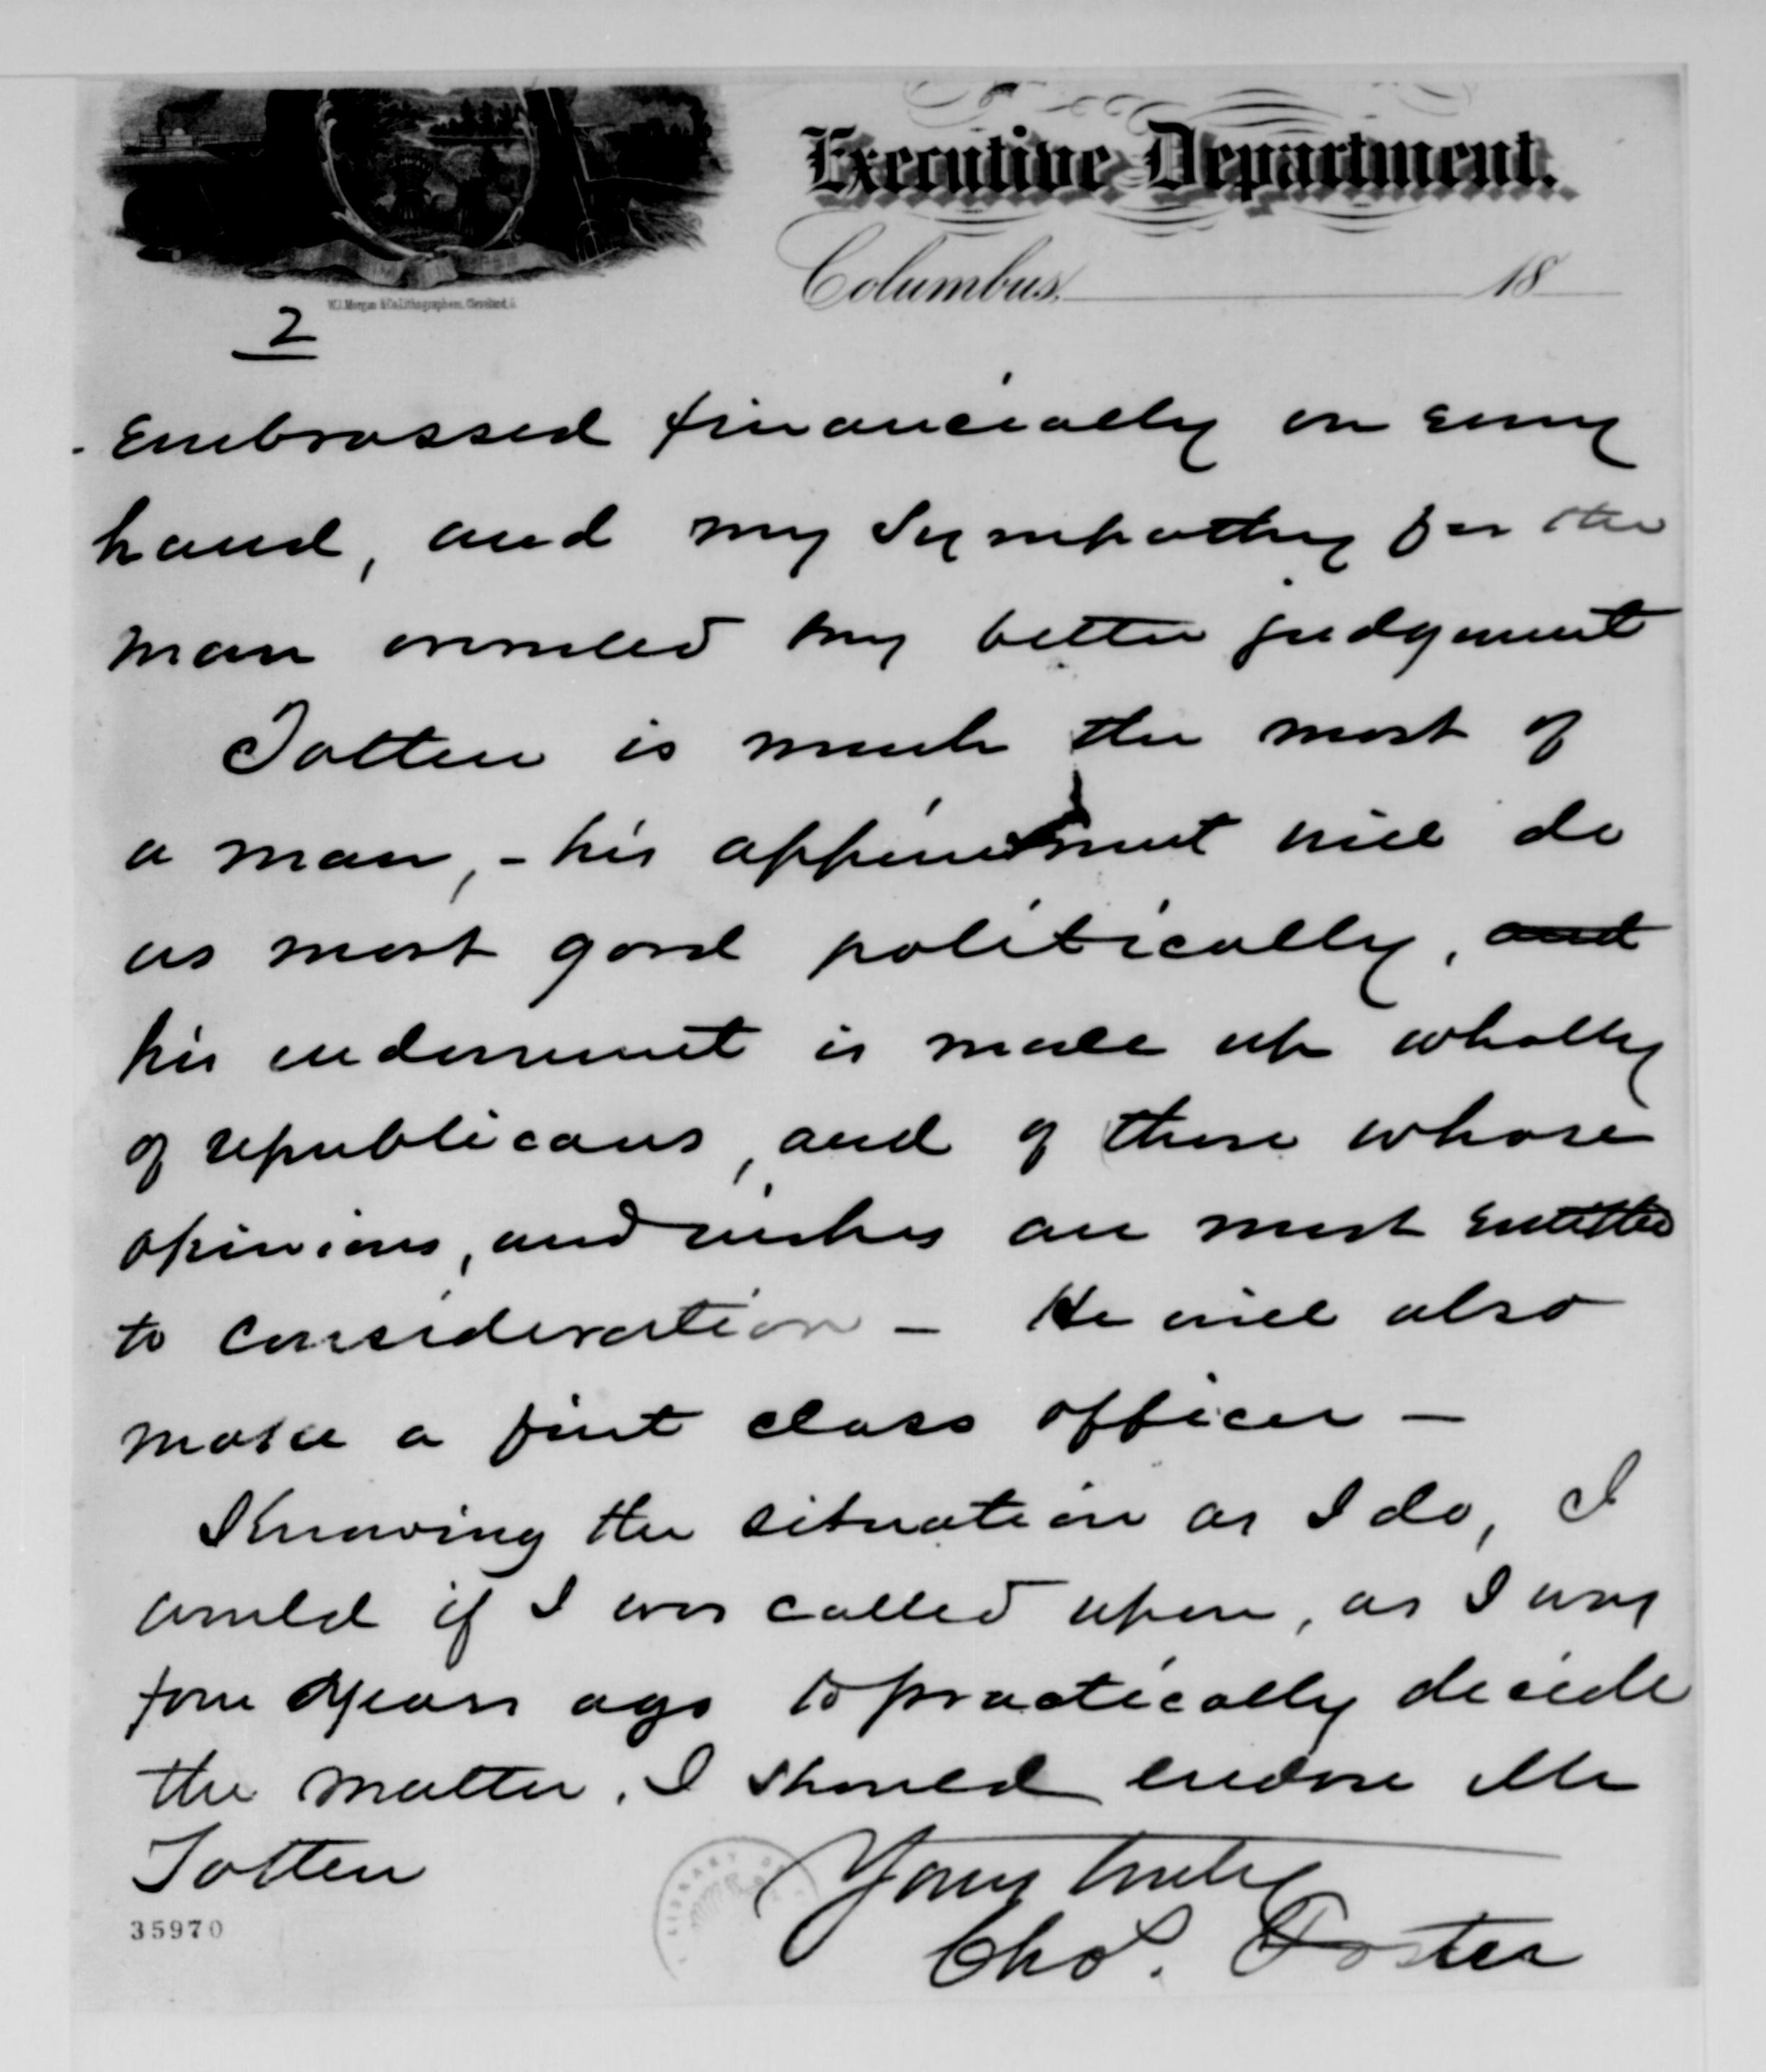 Executive Department.
Columbus, 18
W.J. Morgan & Co. Lithographers, Cleveland, O.
2
Embrassed financially on every
hand, and my Sympathy for the
man overruled my better judgement
Totten is much the most of
a man, - his appointment will do
us most good politically, and
his endorsement is made up wholly
of republicans, and of those whose
opinions, and wishes are most entitled
to consideration - He will also
make a first class officer -
Knowing the situation as I do, I
would if I was called upon, as I was
four years ago to practically decide
the matter, I should endorse Mr
Totten
Yours truly
Chas. Foster
35970